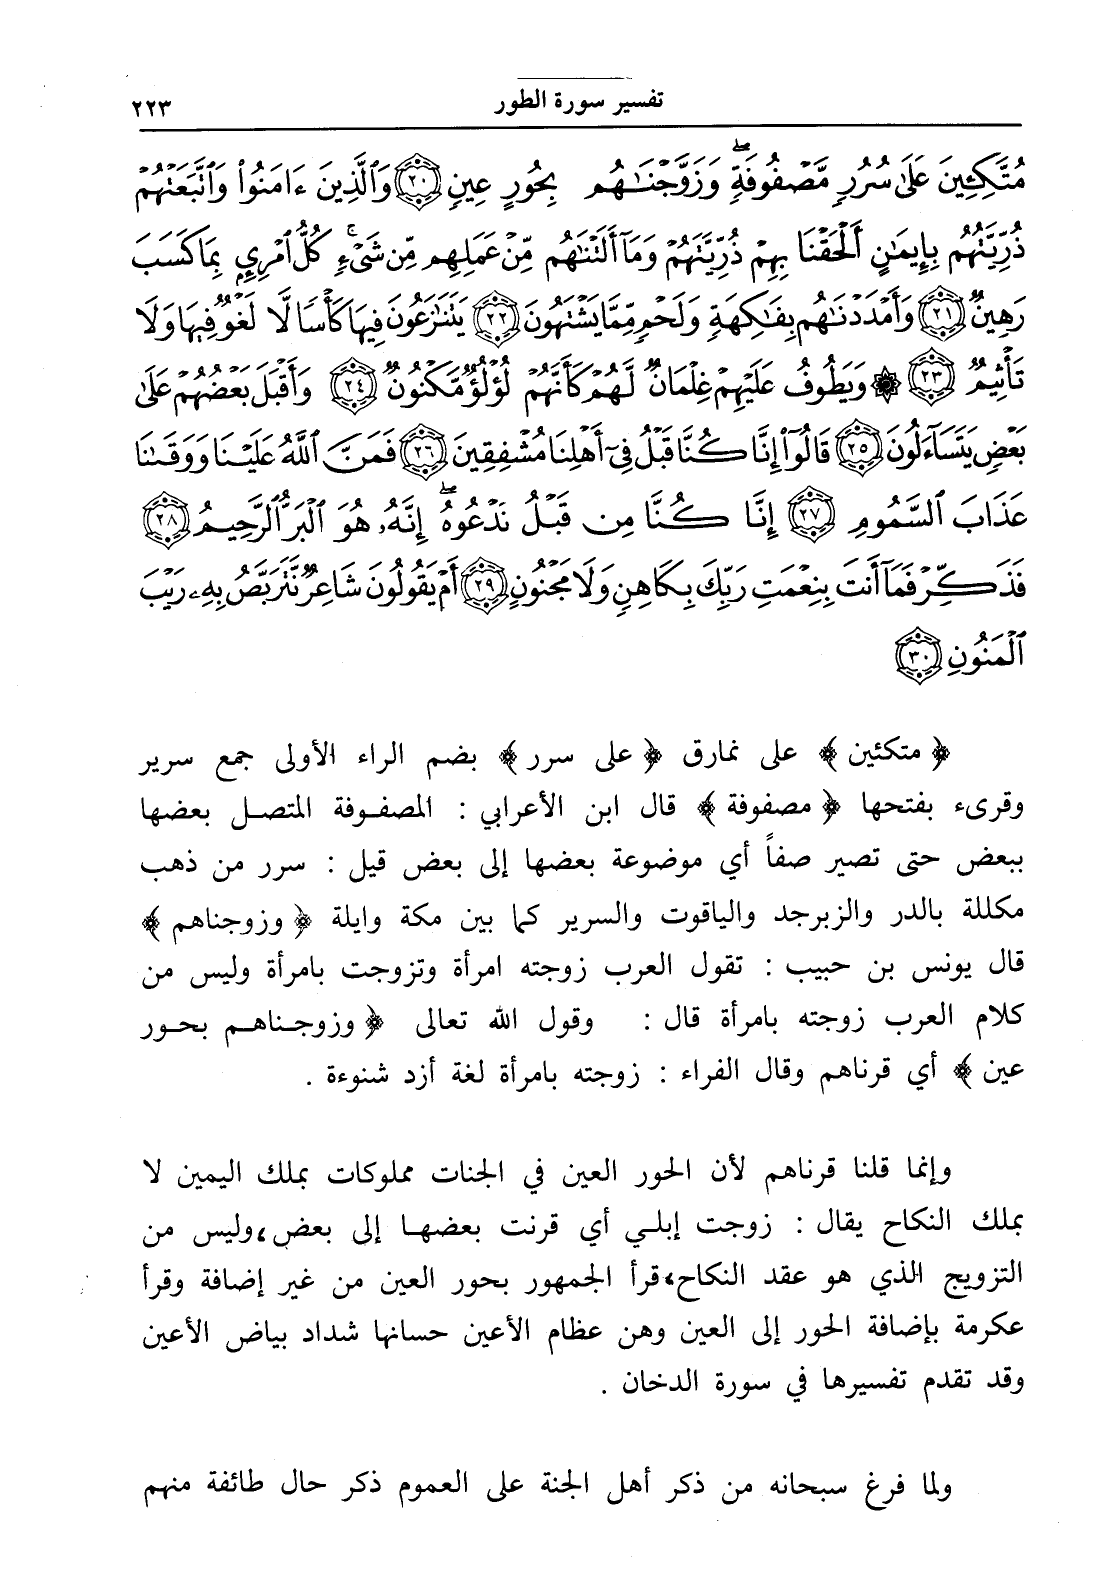 تفسير سورة الطور ٢٢٣
مُتَّكِئِينَ عَلَىٰ سُرُرٍ مَّصْفُوفَةٍ ۖ وَزَوَّجْنَاهُم بِحُورٍ عِينٍ ٢٠ وَالَّذِينَ ءَامَنُوا۟ وَاتَّبَعَتْهُمْ
ذُرِّيَّتُهُم بِإِيمَانٍ أَلْحَقْنَا بِهِمْ ذُرِّيَّتَهُمْ وَمَآ أَلَتْنَاهُم مِّنْ عَمَلِهِم مِّن شَىْءٍ ۚ كُلُّ امْرِئٍ بِمَا كَسَبَ
رَهِينٌ ٢١ وَأَمْدَدْنَاهُم بِفَاكِهَةٍ وَلَحْمٍ مِّمَّا يَشْتَهُونَ ٢٢ يَتَنَازَعُونَ فِيهَا كَأْسًا لَّا لَغْوٌ فِيهَا وَلَا
تَأْثِيمٌ ٢٣ ۞ وَيَطُوفُ عَلَيْهِمْ غِلْمَانٌ لَّهُمْ كَأَنَّهُمْ لُؤْلُؤٌ مَّكْنُونٌ ٢٤ وَأَقْبَلَ بَعْضُهُمْ عَلَىٰ
بَعْضٍ يَتَسَآءَلُونَ ٢٥ قَالُوٓا۟ إِنَّا كُنَّا قَبْلُ فِىٓ أَهْلِنَا مُشْفِقِينَ ٢٦ فَمَنَّ اللَّهُ عَلَيْنَا وَوَقَىٰنَا
عَذَابَ السَّمُومِ ٢٧ إِنَّا كُنَّا مِن قَبْلُ نَدْعُوهُ ۖ إِنَّهُ هُوَ الْبَرُّ الرَّحِيمُ ٢٨
فَذَكِّرْ فَمَآ أَنتَ بِنِعْمَتِ رَبِّكَ بِكَاهِنٍ وَلَا مَجْنُونٍ ٢٩ أَمْ يَقُولُونَ شَاعِرٌ نَّتَرَبَّصُ بِهِ رَيْبَ
الْمَنُونِ ٣٠
﴿ متكئين ﴾ على نمارق ﴿ على سرر ﴾ بضم الراء الأولى جمع سرير
وقرىء بفتحها ﴿ مصفوفة ﴾ قال ابن الأعرابي : المصفوفة المتصل بعضها
ببعض حتى تصير صفاً أي موضوعة بعضها إلى بعض قيل : سرر من ذهب
مكللة بالدر والزبرجد والياقوت والسرير كما بين مكة وايلة ﴿ وزوجناهم ﴾
قال يونس بن حبيب : تقول العرب زوجته امرأة وتزوجت بامرأة وليس من
كلام العرب زوجته بامرأة قال : وقول الله تعالى ﴿ وزوجناهم بحور
عين ﴾ أي قرناهم وقال الفراء : زوجته بامرأة لغة أزد شنوءة .
وإنما قلنا قرناهم لأن الحور العين في الجنات مملوكات بملك اليمين لا
بملك النكاح يقال : زوجت إبلي أي قرنت بعضها إلى بعض، وليس من
التزويج الذي هو عقد النكاح، قرأ الجمهور بحور العين من غير إضافة وقرأ
عكرمة بإضافة الحور إلى العين وهن عظام الأعين حسانها شداد بياض الأعين
وقد تقدم تفسيرها في سورة الدخان .
ولما فرغ سبحانه من ذكر أهل الجنة على العموم ذكر حال طائفة منهم